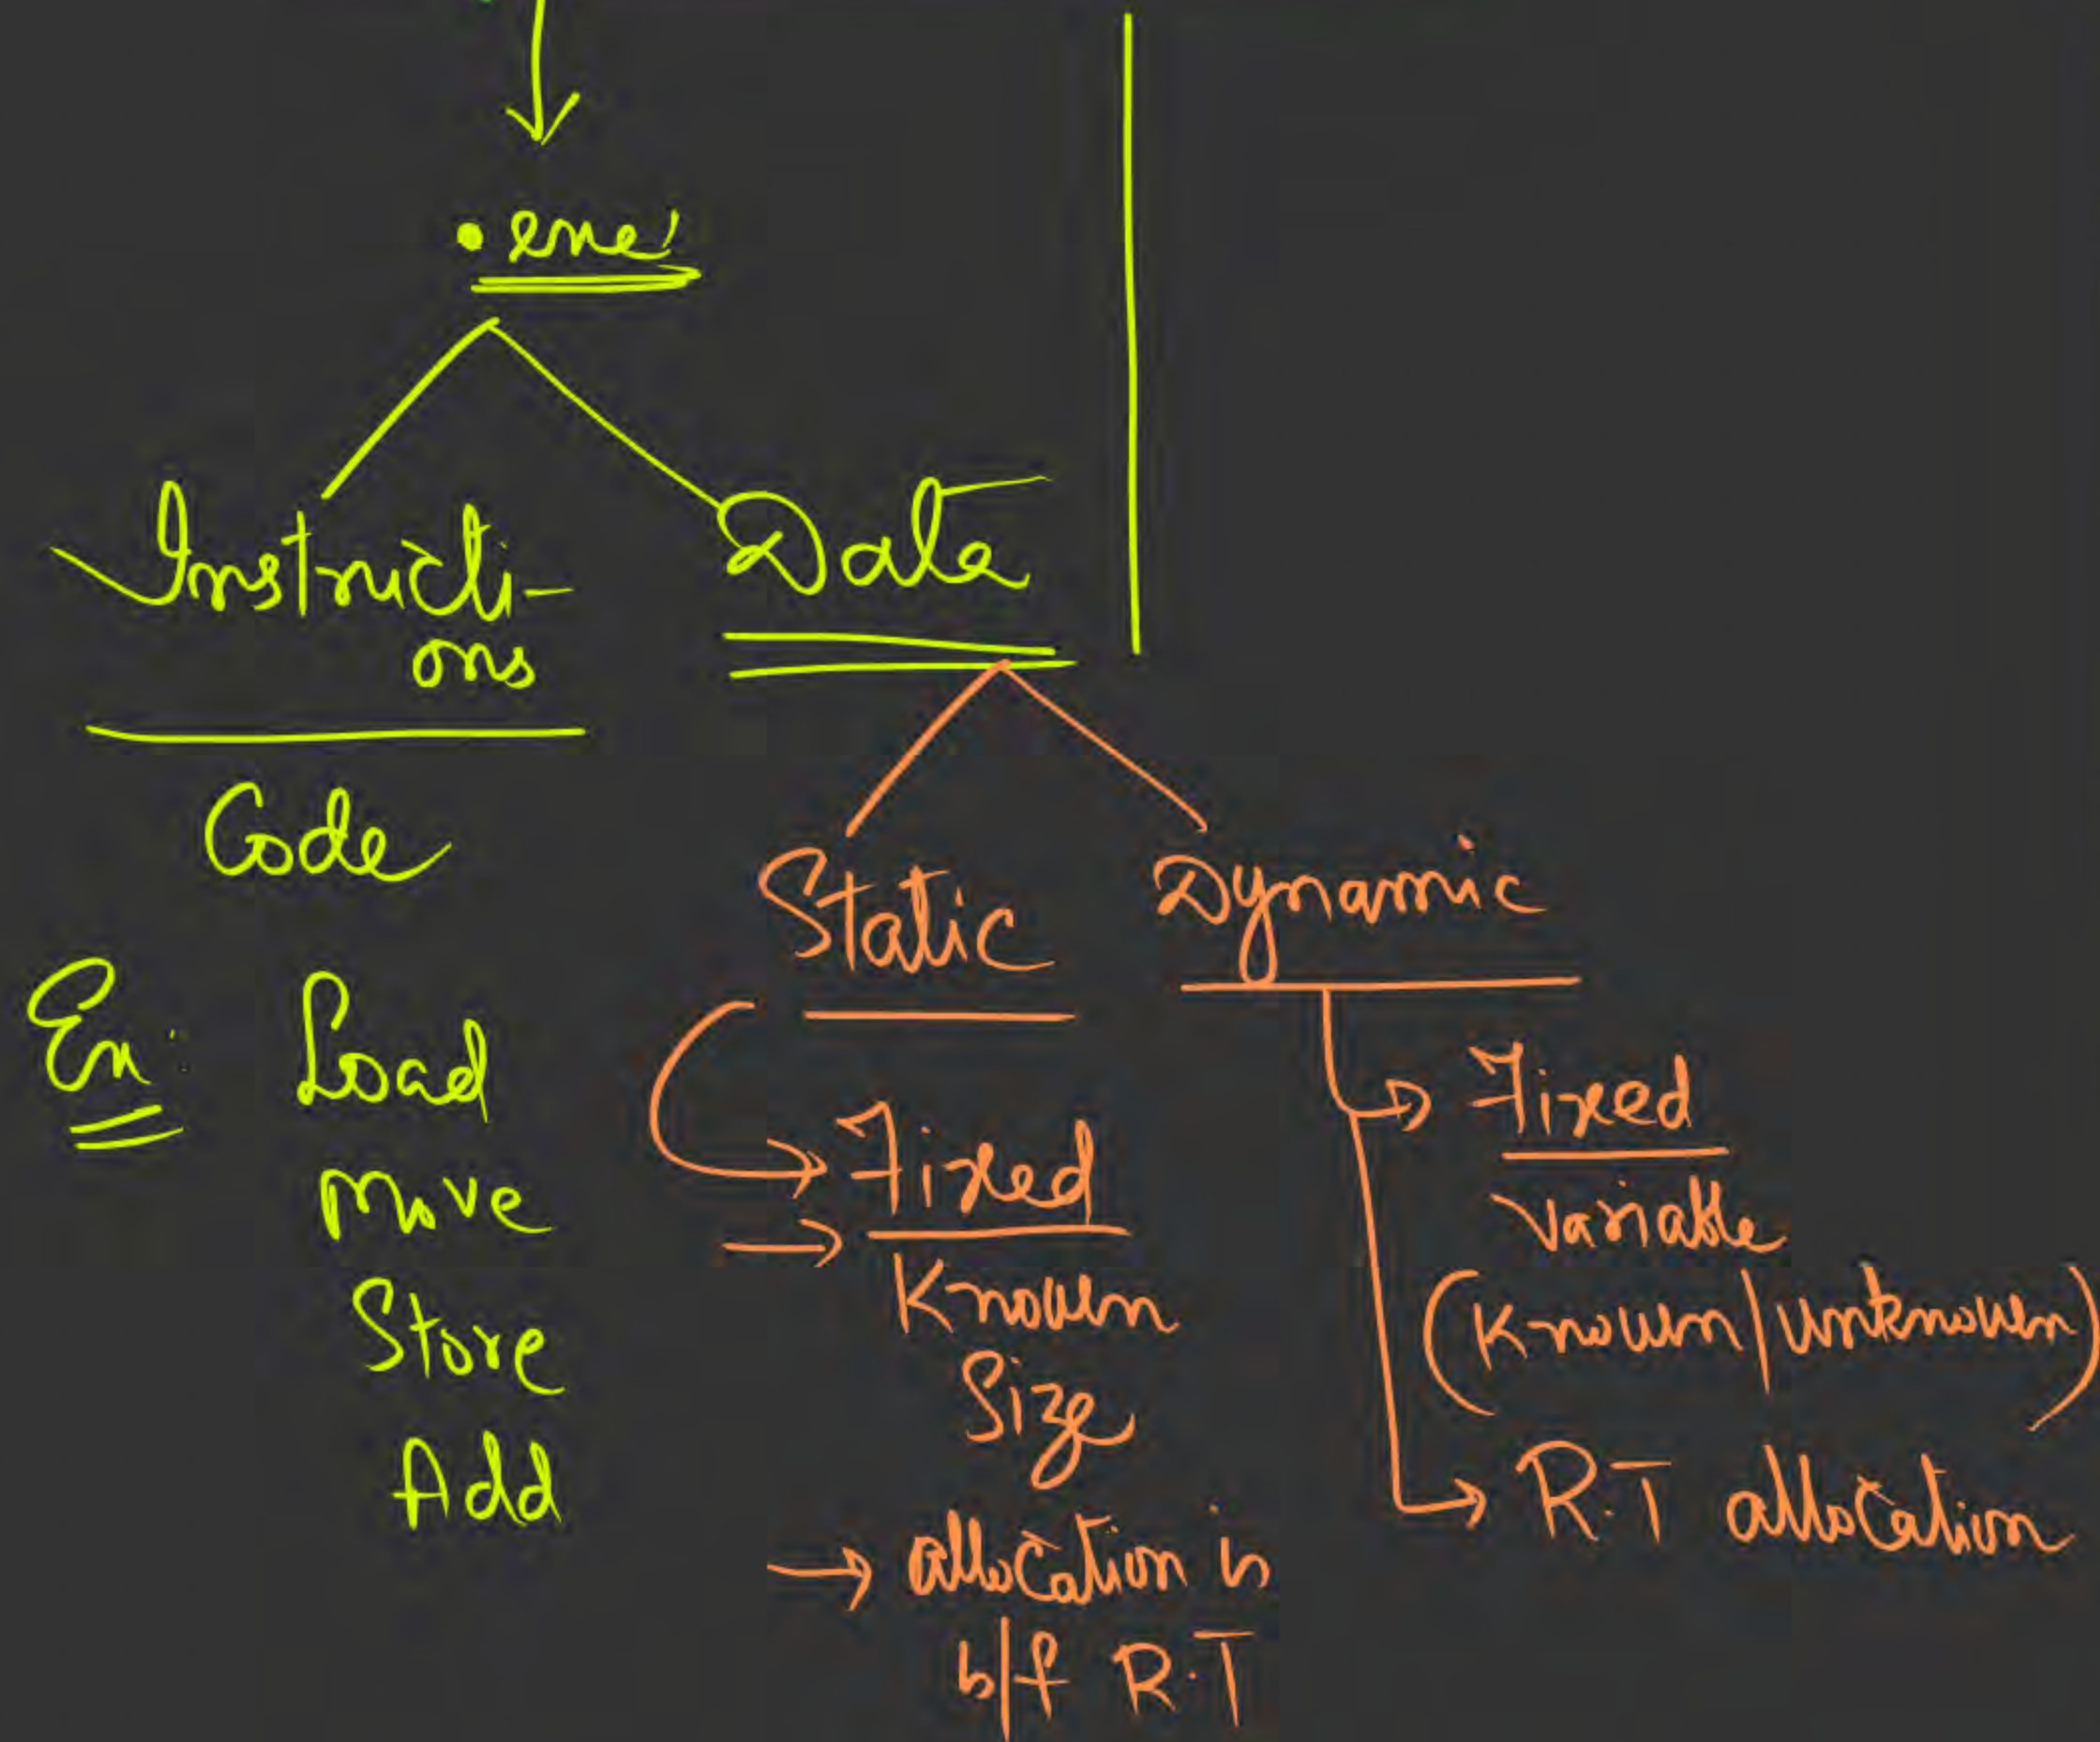 .exe'
Instructi-
ons
Data
Code
Ex:
Load
Move
Store
Add
Static
→ Fixed
→ Known
Size
→ allocation is
b/f R.T
Dynamic
→ Fixed
Variable
(Known/unknown)
→ R.T allocation